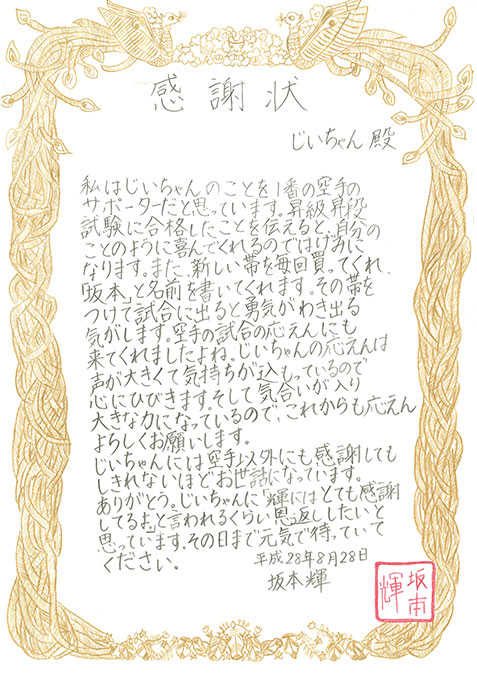 感謝状
じいちゃん殿
私はじいちゃんのことを1番の空手の
サポーターだと思っています。昇級昇段
試験に合格したことを伝えると、自分の
ことのように喜んでくれるのではげみに
なります。また、新しい帯を毎回買ってくれ、
「坂本」と名前を書いてくれます。その帯を
つけて試合に出ると勇気がわき出る
気がします。空手の試合の応えんにも
来てくれましたよね。じいちゃんの応えんは
声が大きくて気持ちが込もっているので
心にひびきます。そして気合いが入り
大きな力になっているので、これからも応えん
よろしくお願いします。
じいちゃんには空手以外にも感謝しても
しきれないほどお世話になっています。
ありがとう。じいちゃんに「輝にはとても感謝
してるよ」と言われるくらい恩返ししたいと
思っています。その日まで元気で待っていて
ください。
平成28年8月28日
坂本輝
坂本
輝